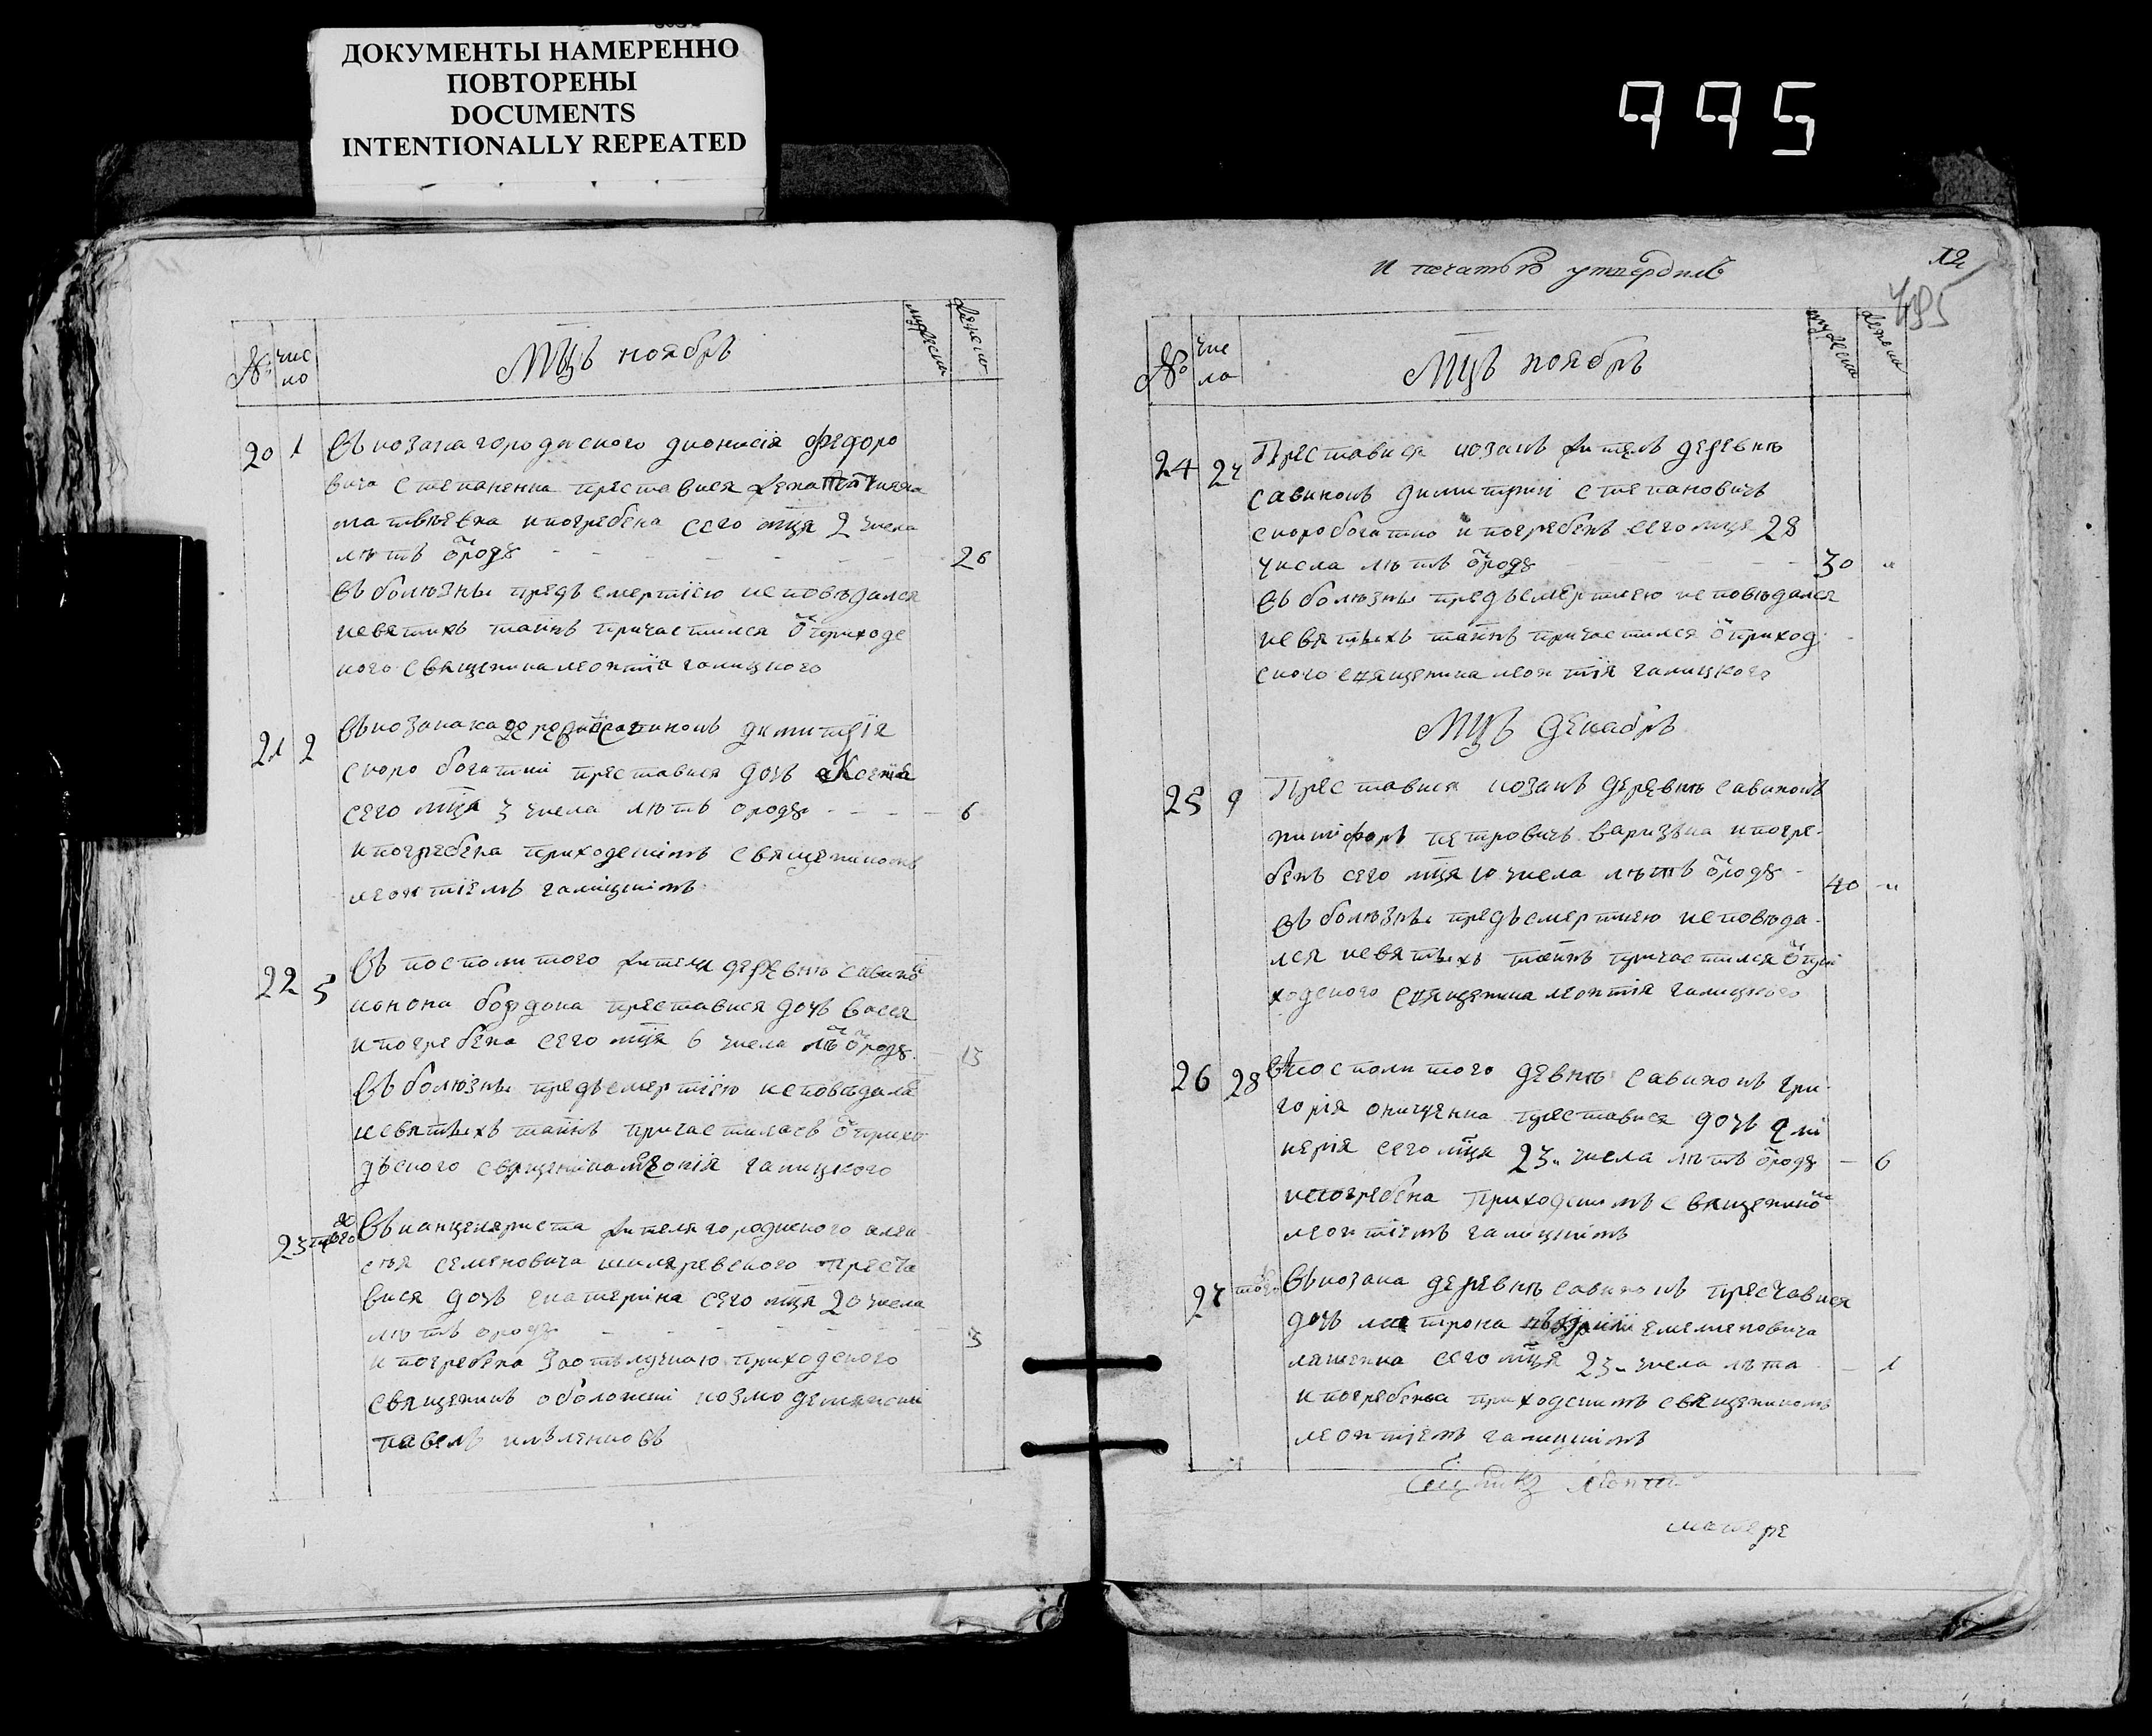 ДОКУМЕНТЫ НАМЕРЕННО
ПОВТОРЕНЫ
DOCUMENTS
INTENTIONALLY REPEATED
995
№ чис ло Мцъ ноябрь мужеска женско
20 1 Въ козака городиского дионисія федоро
вича степаненка преставися жена татияна
матвѣевна и погребена сего мця 2 числа
лѣтъ ѿродꙋ - - - 26
въ болѣзнѣ предъ смертію исповѣдался
и святихъ таинъ причастился ѿ приходс
кого священика леонтіа галицкого
21 2 въ козака деревнѣ савинокъ димитрія
скоро богатии преставися дочь Ксенія
сего мця 3 числа лѣтъ ѿродꙋ - - - 6
и погребена приходскімъ священикомъ
леонтіемъ галицкімъ
22 5 въ посполитого жителя деревнѣ савинокъ
конона бордона преставися дочь васся
и погребена сего мця 6 числа лѣтъ ѿродꙋ - 13
въ болѣзнѣ предъ смертію исповѣдала
и святыхъ таинъ причастилась ѿ прихо
дского священика леонтія галицкого
23 того въ канцеляриста жителя городиского алек
сѣя семеновича шкляревского преста
вися дочь екатерина сего мця 20 числа
лѣтъ ѿродꙋ - - - 3
и погребена за отлучкою приходского
священикъ оболонскій козмодемянскій
павелъ
и печатью утвердилъ
12
495
№ чис ла Мцъ ноябрь мужеска женска
24 27 Преставися козакъ житель деревнѣ
савинокъ димитрий степановичъ
скоробогатко и погребенъ сего мця 28
числа лѣтъ ѿродꙋ - - - 30 "
въ болѣзнѣ предъ смертию исповѣдался
и святыхъ таинъ причастился ѿ приход
ского священика леонтія галицкого
Мцъ Декабрь
25 9 Преставися козакъ деревнѣ савинокъ
никифоръ петровичъ и погре
бенъ сего мця 10 числа лѣтъ ѿродꙋ - 40 "
въ болѣзнѣ предъ смертию исповѣда
лся и святыхъ таинъ причастился ѿ при
ходского священика леонтія галицкого
26 28 въ посполитого девнѣ савинокъ гри
горія онищенка преставися дочь гли
керія сего мця 23 числа лѣтъ ѿродꙋ - 6
и погребена приходскимъ священико
леонтіемъ галицкімъ
27 того въ козака деревнѣ савинокъ преставися
дочь матрона емелиановича
ляшенка сего мця 23 числа лѣта - 1
и погребена приходскимъ священикомъ
леонтіемъ галицкімъ
леонтий